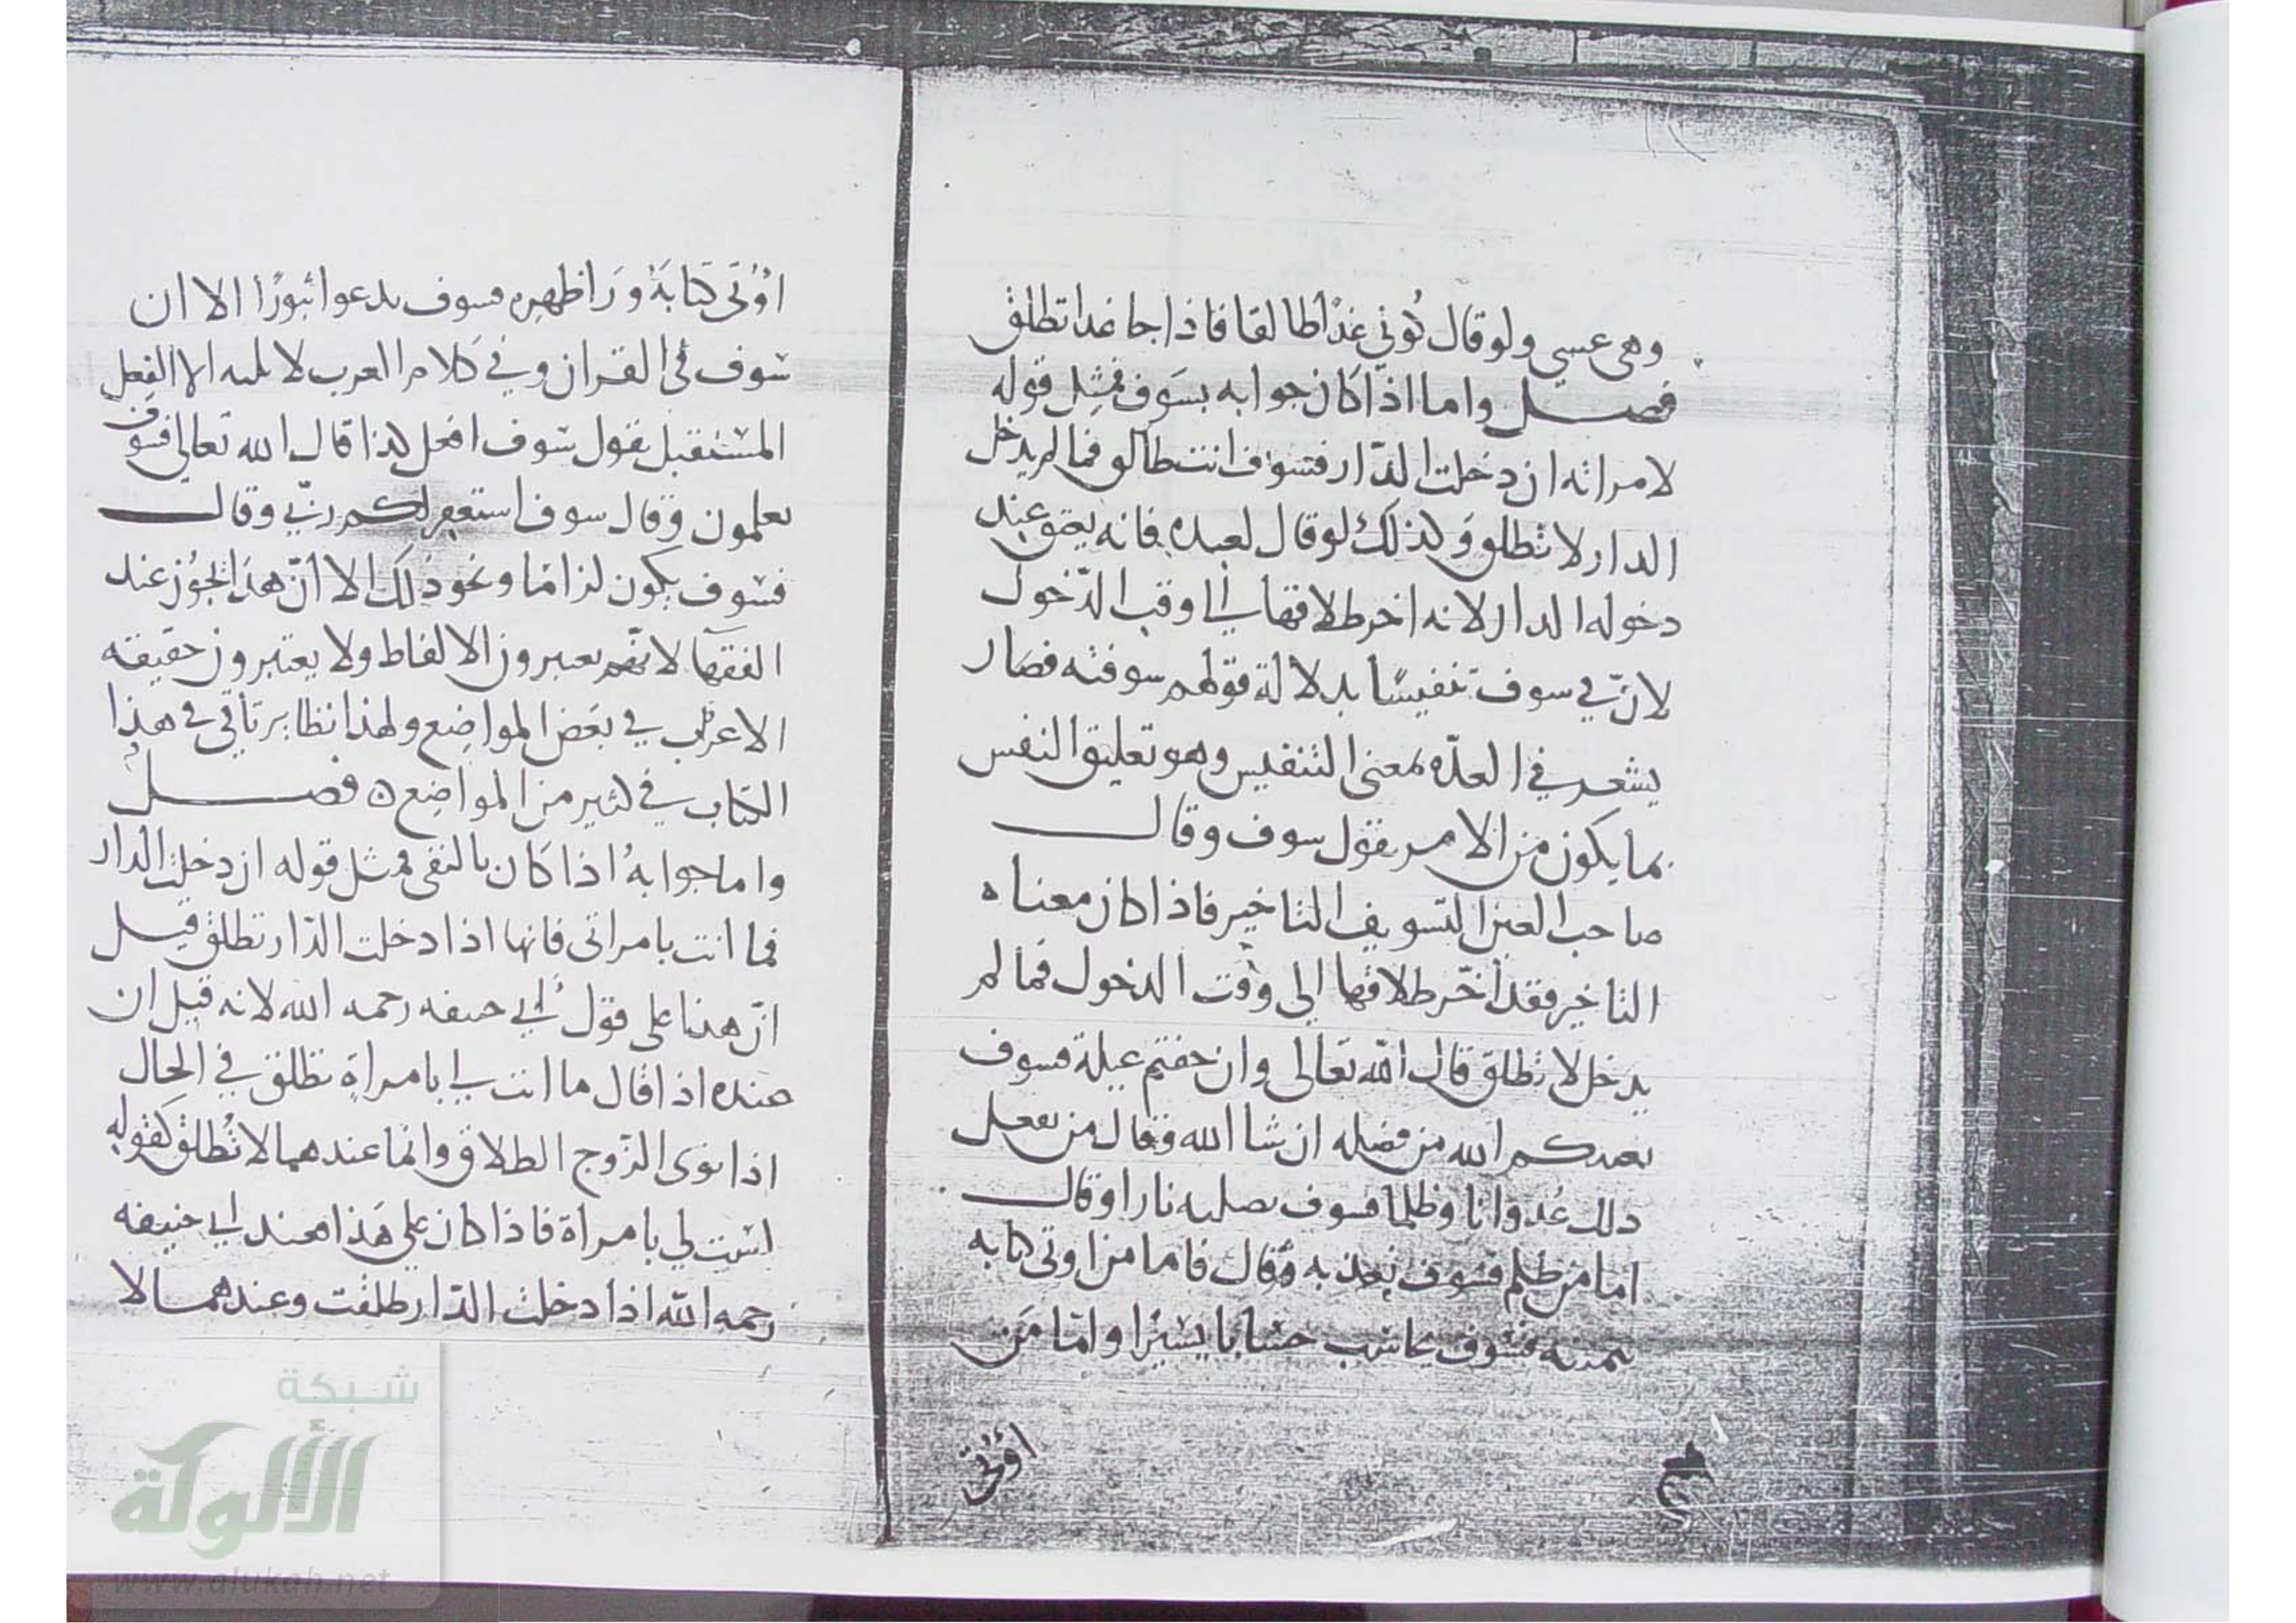 وهى عسى ولو قال كُونى غدًا طالقا فاذا جا غدا تطلق
فصل واما اذا كان جوابه بسَوف فمثِل قوله
لامراته ان دخلت الدّار فسَوف انت طالق فما لم يدخل
الدار لا تطلق وَكذلكَ لو قال لعبده فانه يعتق عند
دخوله الدار لانه اخر طلاقها الى وقت الدّخول
لانّ في سوف تنفيسًا بدلالة قولهم سوفته فصَار
يشعر في العدّه بمعنى التنفيس وهو تعليق النفس
بما يكون من الامر بقول سوف وقال
صاحب العين التسويف التاخير فاذا كان معناه
التاخير فقد أخّر طلاقها الى وقت الدخول فما لم
يدخل لا تطلق قال الله تعالى وان خفتم عيلة فسوف
يغنيكم الله من فضله ان شا الله وقال من يفعل
ذلك عُدوانا وظلما فسوف نصليه نارا وقال
اما من ظلم فسوف نعذبه وقال فاما من اوتى كتابه
بيمينه فسَوف يحاسَب حسَابا يسَيرًا وامّا مَن
اوُتى
اوُتى كتابَهُ ورَا ظهره فسوف يدعوا ثبورًا الا ان
سَوف في القران وفي كلام العرب لا يليه الا الفعل
المستقبل يقول سَوف افعل كذا قال الله تعالى فسوف
تعلمون وقال سوف استغفر لكم ربّي وقال
فسَوف يكون لزامًا ونحو ذلك الا أنّ هذا يجوُز عند
الفقهَا لانهّم يعتبرون الالفاظ ولا يعتبرون حقيقة
الاعراب في بعَض المواضِع ولهذا نظاير تاتى في هذا
الكتاب في كثير من المواضِع ٥ فصل
واما جوابهُ اذا كان بالنفى فمثل قوله ان دخلت الدار
فما انت بامراتى فانها اذا دخلت الدّار تطلق قيل
انّ هذا على قول أبي حنيفه رحمه الله لانه قيل ان
عنده اذا قال ما انت لي بامراةٍ تطلق في الحال
اذا نوى الزّوج الطلاق وامّا عندهما لا تُطلق كقوله
لسَت لي بامراة فاذا كان على هَذا فعند ابي حنيفه
رحمه الله اذا دخلت الدّار طلقت وعندهما لا
شبكة
الألوكة
www.alukah.net